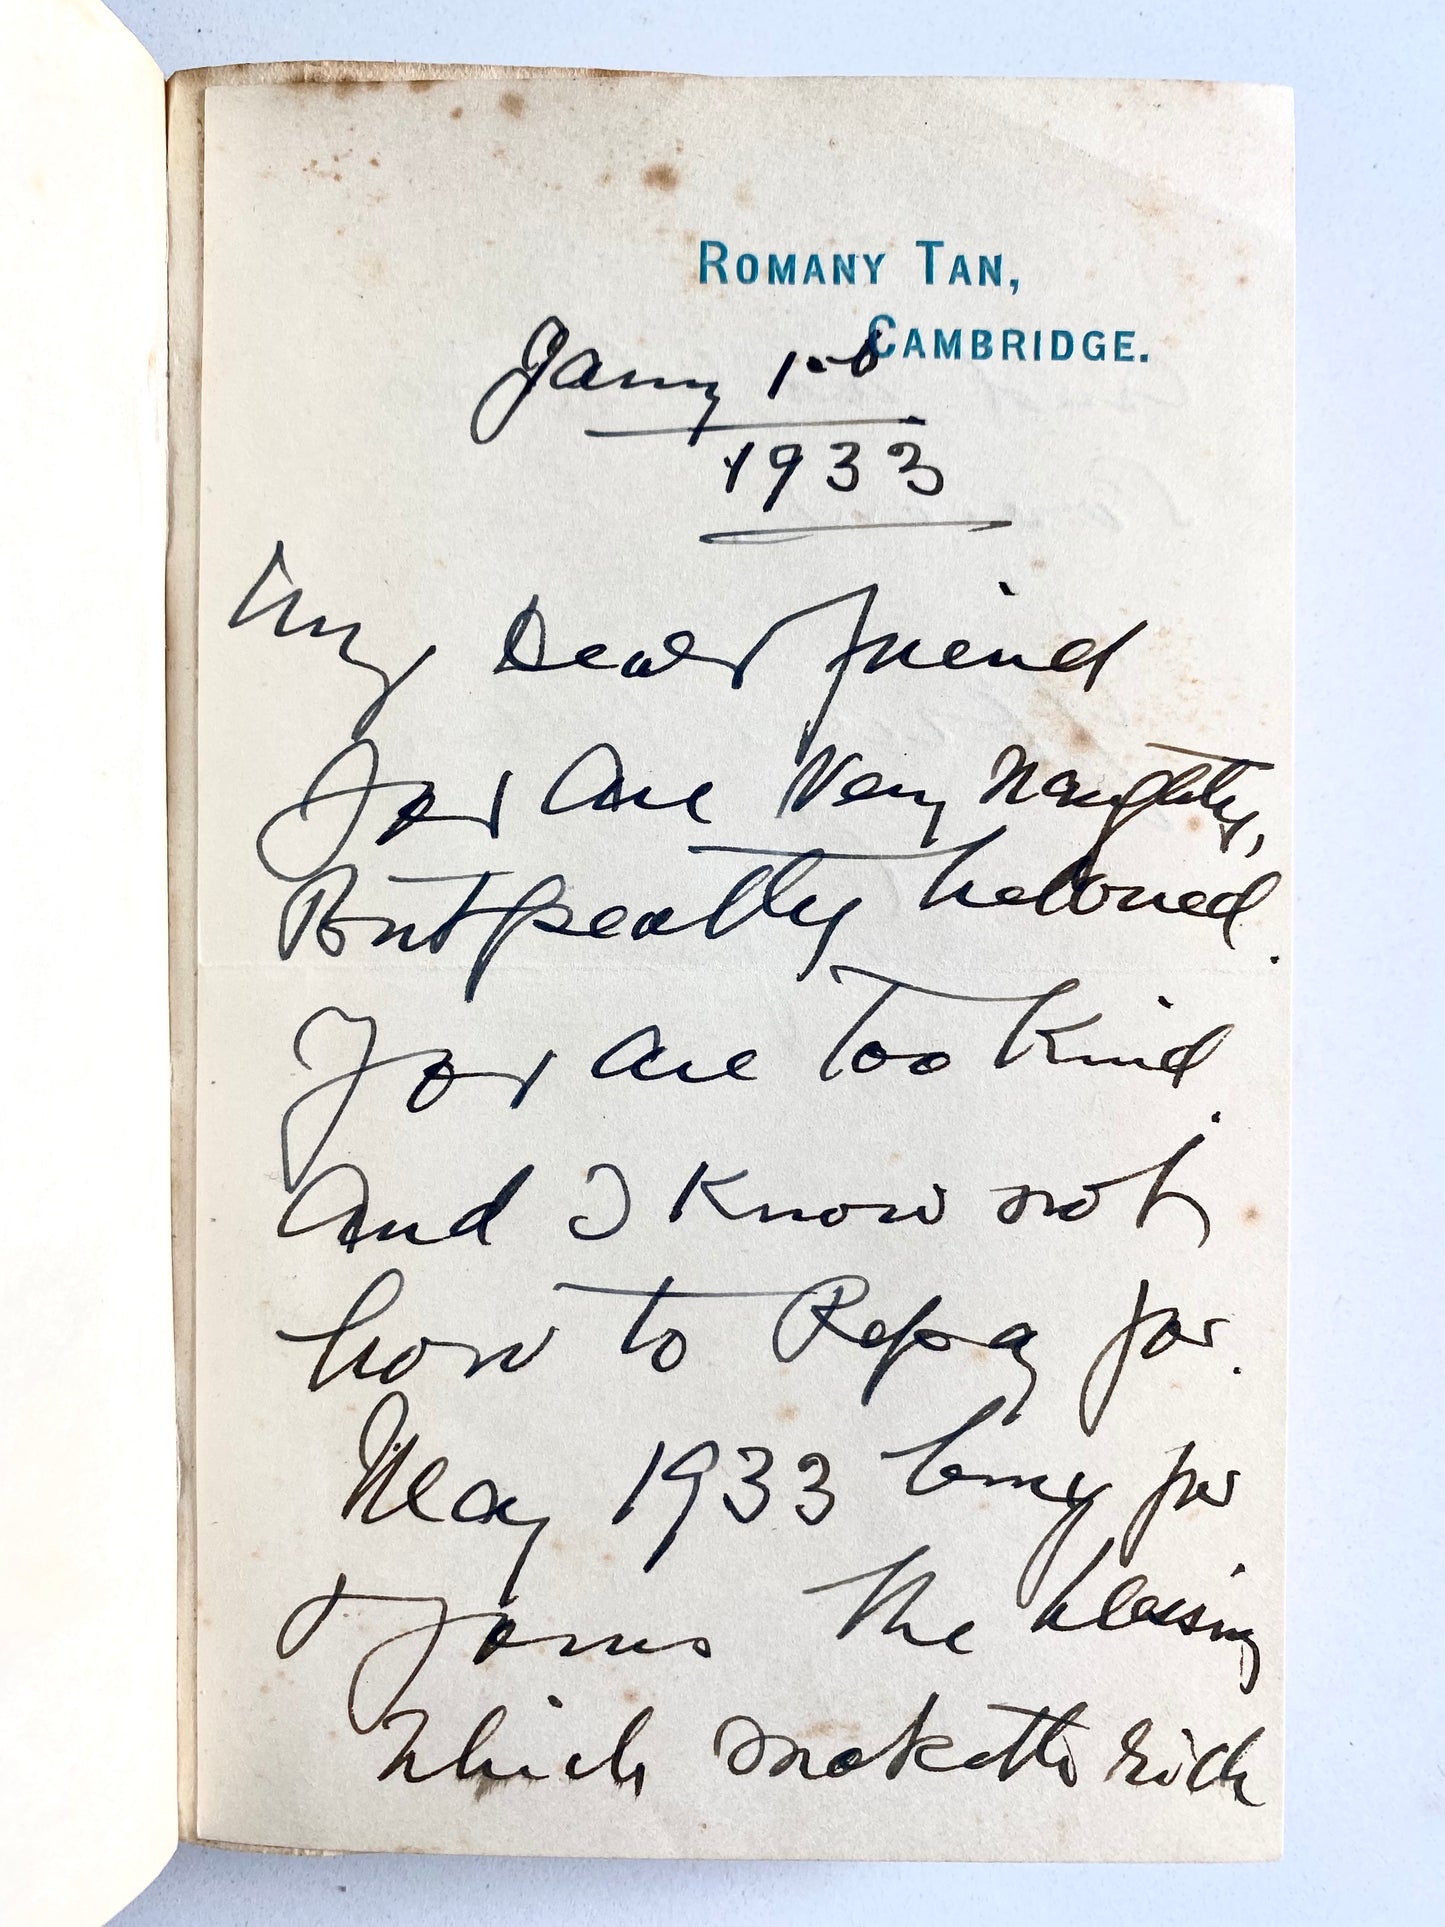 ROMANY TAN,
CAMBRIDGE.
Jany 1st
1933
My Dear friend
You are Very Naughty,
But greatly beloved.
You are Too Kind.
And I Know not
how to Repay you.
May 1933 bring you
& yours the blessing
Which maketh rich